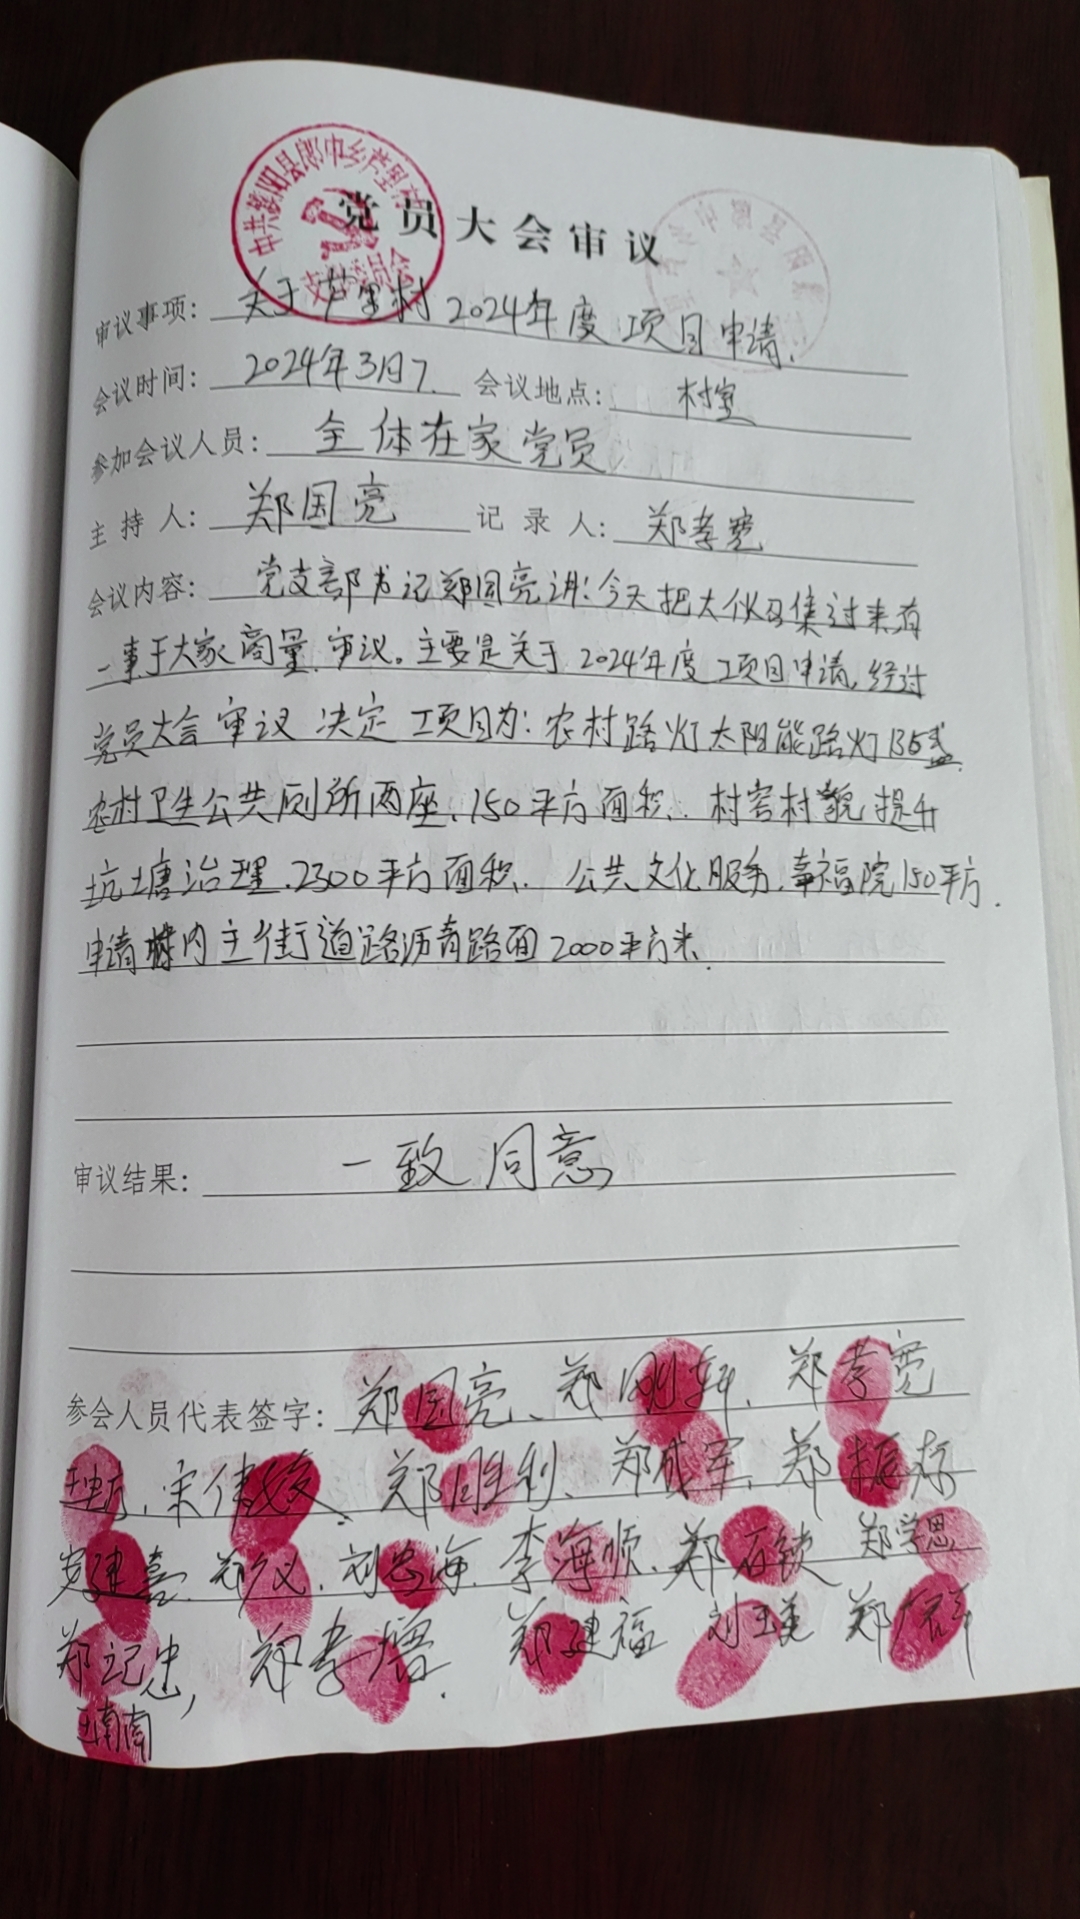 中共濮阳县郎中乡芦里村
支部委员会
党员大会审议
审议事项: 关于芦里村2024年度项目申请.
会议时间: 2024年3月7. 会议地点: 村室
参加会议人员: 全体在家党员
主持人: 郑国亮 记录人: 郑孝宽
会议内容: 党支部书记郑国亮讲:今天把大伙召集过来有
一事于大家商量.审议。主要是关于2024年度项目申请,经过
党员大会审议决定项目为:农村路灯太阳能路灯135盏.
农村卫生公共厕所两座、150平方面积.村容村貌提升
坑塘治理.2300平方面积.公共文化服务.幸福院150平方.
申请村内主街道路沥青路面2000平方米.
审议结果: 一致同意
参会人员代表签字: 郑国亮、郑刚轩、郑孝宽
宋伟俊、郑胜利、郑成军、郑振存
建喜、郑义、刘忠海、李海顺、郑石锁 郑学思
郑记忠, 郑孝增. 郑建福 刘玉美 郑
王南南